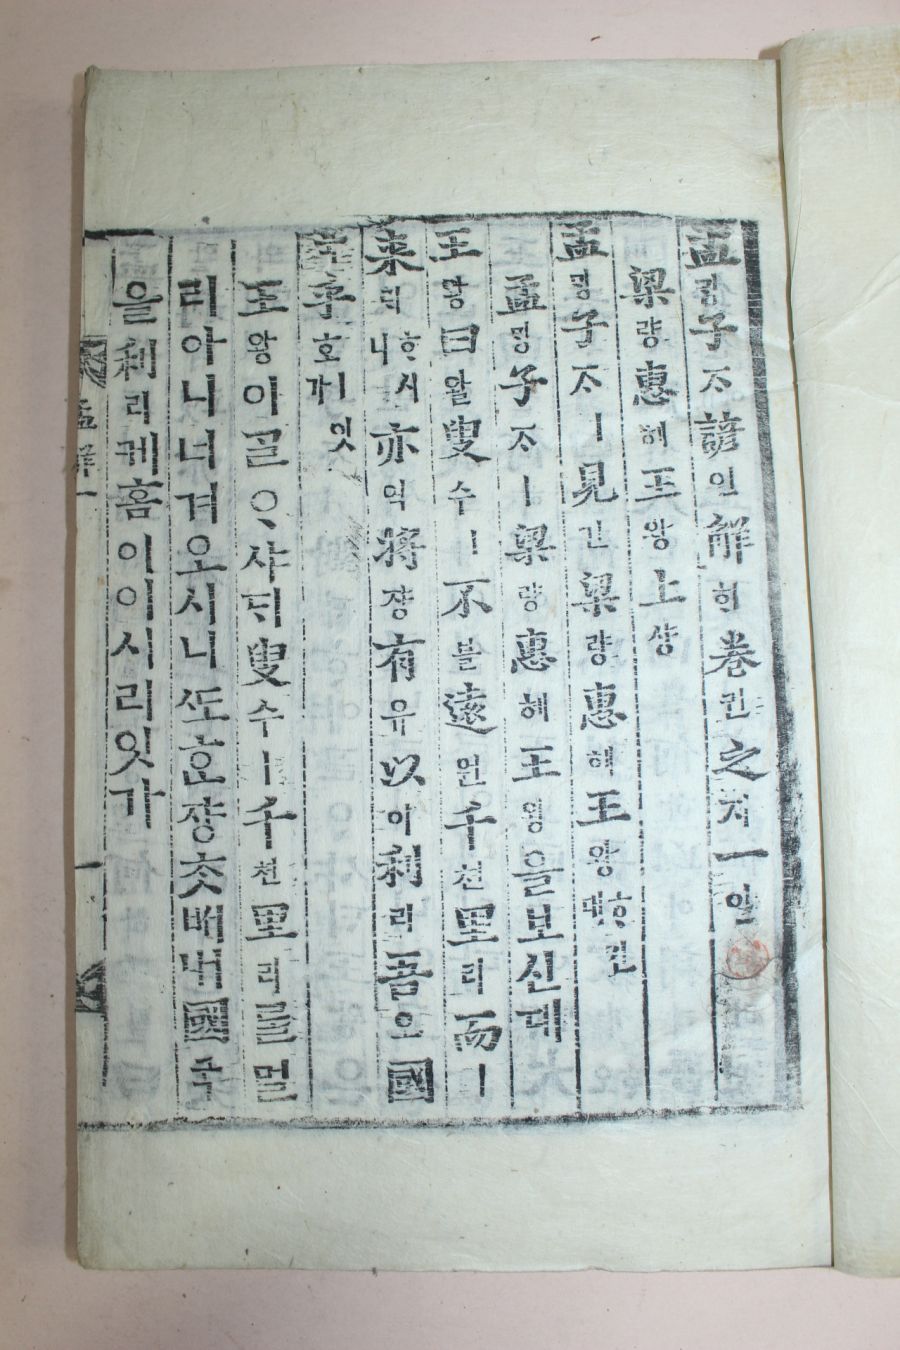 孟ᄆᆡᆼ子ᄌᆞ諺언解ᄒᆡ卷권之지一일
梁량惠혜王왕上샹
孟ᄆᆡᆼ子ᄌᆞㅣ見견梁량惠혜王왕ᄒᆞ신대
孟ᄆᆡᆼ子ᄌᆞㅣ梁량惠혜王왕을보신대
王왕曰왈叟수ㅣ不블遠원千쳔里리而ㅣ
來ᄅᆡᄒᆞ시니亦역將쟝有유以이利리吾오國
乎호ㅣ잇가
王왕이ᄀᆞᆯᄋᆞ샤ᄃᆡ叟수ㅣ千쳔里리ᄅᆞᆯ멀
리아니너겨오시니ᄯᅩᄒᆞᆫ쟝ᄎᆞᆺᄡᅥ내國국
을利리케홈이이시리잇가
孟解一